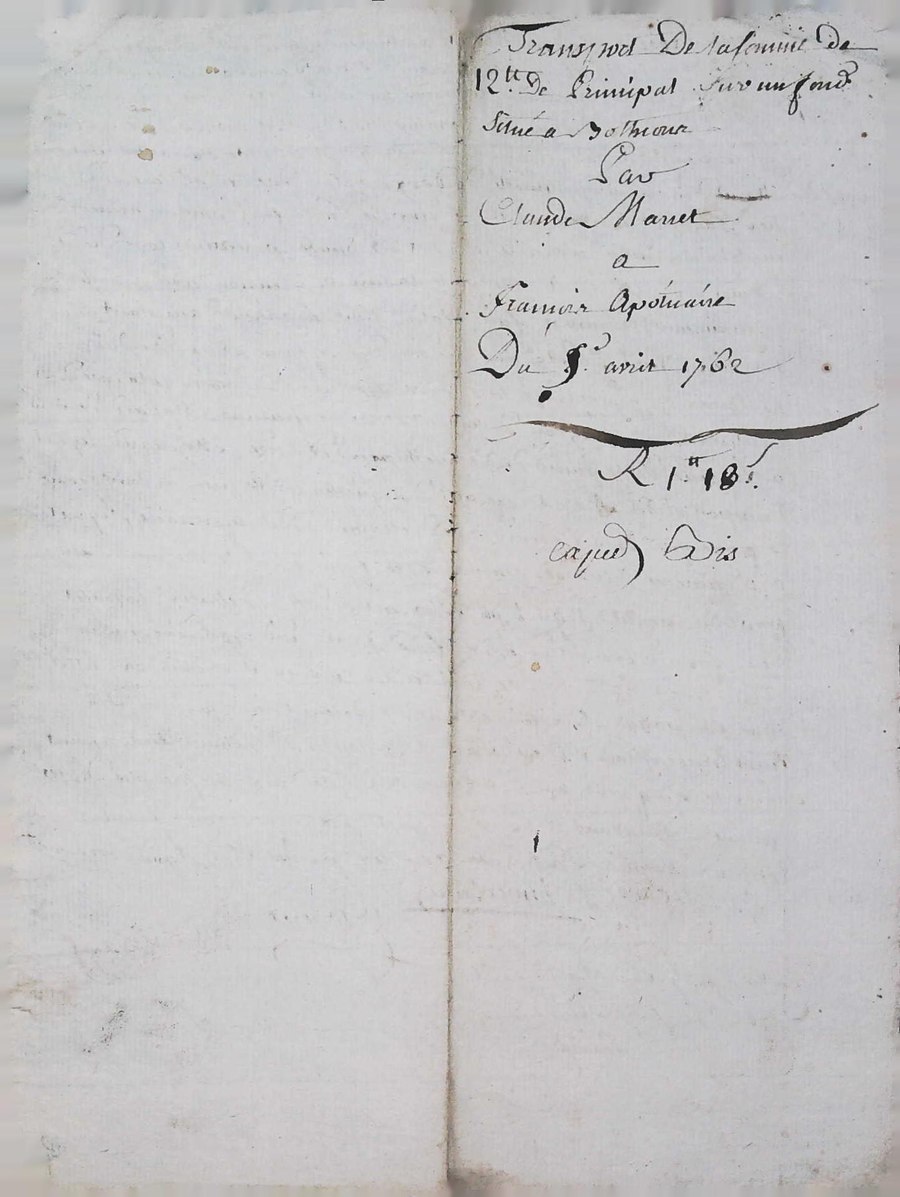 Transport De la somme de
12tt. De Principal sur un fond
Situé a Bothioux
Par
Claude Marret
a
Francois Apotuaire
Du 5.e avril 1762
R 1tt 18s.